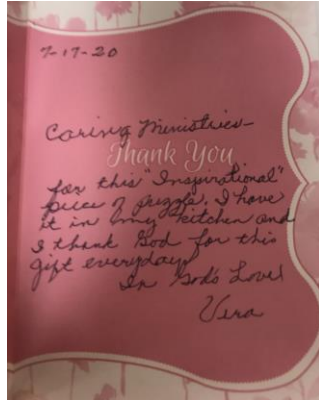 7-17-20
Caring Ministries-
Thank You
for this "Inspirational"
piece of puzzle. I have
it in my kitchen and
I thank God for this
gift everyday!
In God's Love!
Vera